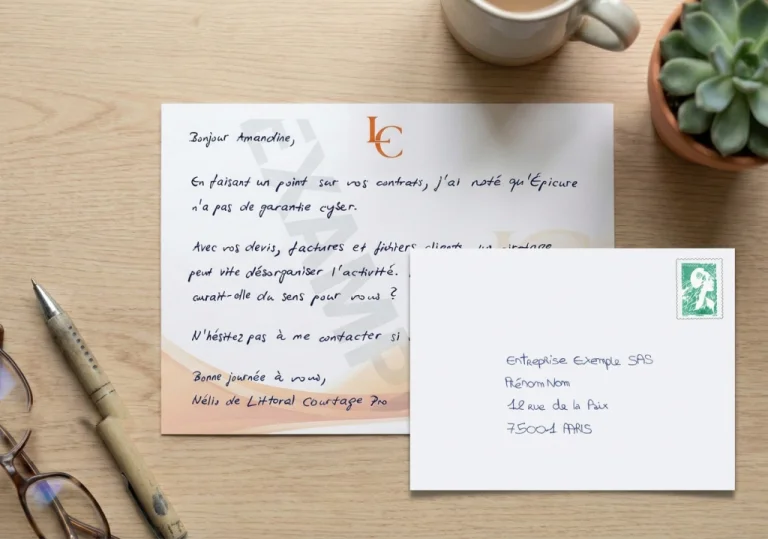 LC
Bonjour Amandine,
En faisant un point sur vos contrats, j'ai noté qu'Épicure
n'a pas de garantie cyber.
Avec vos devis, factures et fichiers clients, un piratage
peut vite désorganiser l'activité.
aurait-elle du sens pour vous ?
N'hésitez pas à me contacter si
Bonne journée à vous,
Nélis de Littoral Courtage Pro
EXAMP
LC
Entreprise Exemple SAS
Prénom Nom
12 rue de la Paix
75001 PARIS